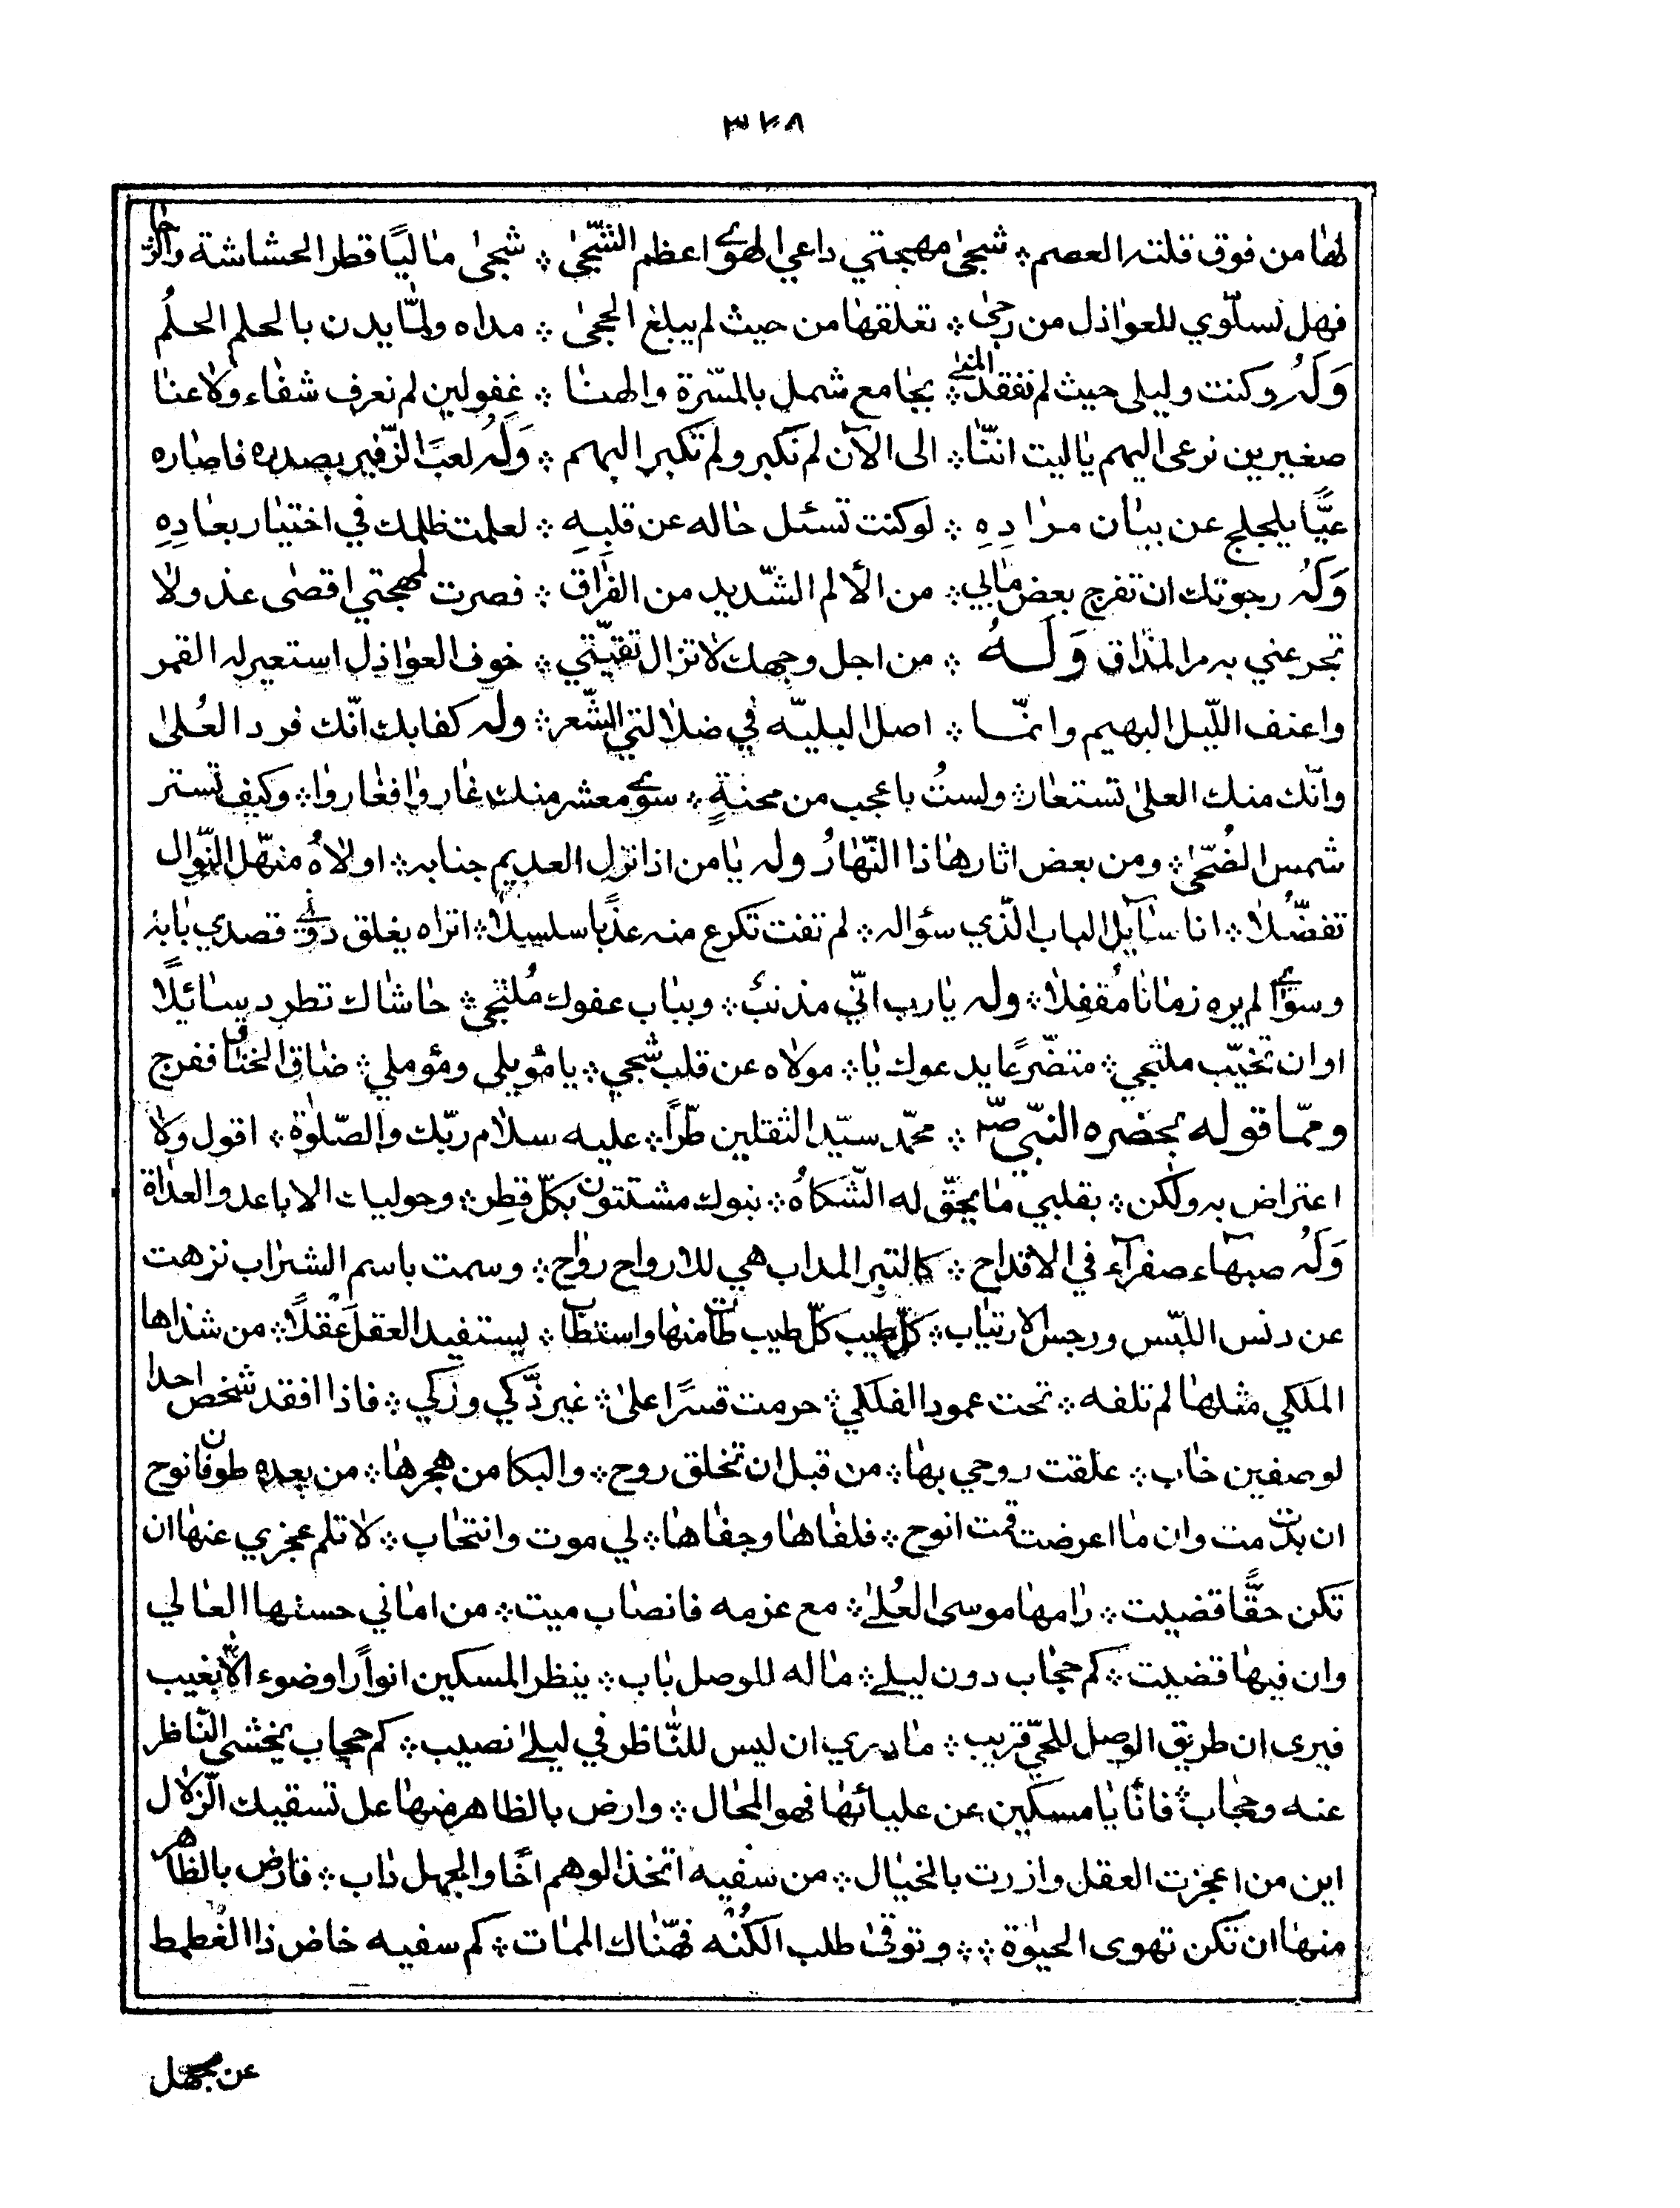 ٣٢٨
لها من فوق قلته العصم ؞ شجى مهجتي داعي الهوى اعظم الشّجى ؞ شجى ماليًا قطر الحشاشة والرّجا
فهل تسلّوي للعواذل من رجى ؞ تعلقها من حيث لم يبلغ الحجى ؞ مداه ولمّا يدن بالحلم الحلُم
وَلَهُ وكنت وليلى حيث لم نفقد المنى ؞ بجامع شمل بالمسّرة والهنا ؞ غِفولين لم نعرف شفاء ولا عنا
صغيرين نرعى البهم ياليت انّنا ؞ الى الآن لم نكبر ولم تكبر البهم ؞ وَلَهُ لعبَ الزّفير بصدره فاصاره
عيًّا يلجلج عن بيان مرادِهِ ؞ لو كنت تسئل حاله عن قلبهِ ؞ لعلمت ظلمك في اختيار بعادِهِ
وَلَهُ رجوتك ان تفرج بعض مابي ؞ من الألم الشّديد من الفراق ؞ فصرت لمهجتي اقصى عذولا
تجرعني به مر المذاق وَلَــهُ ؞ من اجل وجهك لا تزال تقيّتي ؞ خوف العواذل استعير له القمر
واعنف اللّيل البهيم وانمّـا ؞ اصل البليّه في ضلالتي الشّعر ؞ وله كفابك انّك فرد العُلىٰ
وانّك منك العلىٰ تستعار ؞ ولستُ باعجب من محنةٍ ؞ سوى معشر منك غاروا فغاروا ؞ وكيف تستر
شمس الضُحّى ؞ ومن بعض اثارها ذا النّهارُ وله يامن اذا نزل العديم جنابه ؞ اولاهُ منهّل النّوال
تفضّلا ؞ انا سآيل الباب الّذي سؤاله ؞ لم تفت تكرع منه عذبًا سلسبيلا ؞ اتراه يغلق دوني قصدي بابهُ
وسوآى لم يره زمانا مُقفِلا ؞ وله يارب انّي مذنبٌ ؞ وبباب عفوك مُلتجى ؞ حاشاك تطرد سائيلًا
او ان تخيّب ملتجي ؞ متضّرعًا يدعوك يا ؞ مولاه عن قلب شجي ؞ يا مؤيلي ومؤملي ؞ ضاق الخناق ففرج
وممّا قوله بحضره النبّي صّ ؞ محمّد سيّد الثقلين طّراً ؞ عليه سلام ربّك والصّلوٰة ؞ اقول ولا
اعتراض به ولكن ؞ بقلبي ما يحقّ له الشّكاهُ ؞ بنوك مشتّتون بكلّ قطِر ؞ وحوليات الاباعد والعداة
وَلَهُ صبهاء صفرآء في الاقداح ؞ كالتبر المداب هي للارواح رواح ؞ وسمت باسم الشراب نزهت
عن دنس اللبّس ورجس الارتياب ؞ كلّ طيب كلّ طيب طاب منها واستطاب ؞ يستفيد العقلَ عقلًا ؞ من شذاها
الملكي مثلها لم تلفه ؞ تحت عمود الفلكي ؞ حرمت قسرًا على ؞ غير ذّكي وزكي ؞ فاذا افقد شخص احدا
لوصفين خاب ؞ علقت روحي بها ؞ من قبل ان تخلق روح ؞ والبكا من هجرها ؞ من بعده طوفان نوح
ان بدت مت وان ما اعرضت قمت انوح ؞ فلفاها وجفاها ؞ لي موت وانتحاب ؞ لا تلم عجزي عنها ان
تكن حقًّا قضيت ؞ رامها موسى العُلى ؞ مع عزمه فانصاب ميت ؞ من اماني حسنها العالي
وان فيها قضيت ؞ كم حجاب دون ليلى ؞ ماله للوصل باب ؞ ينظر المسكين انواراً وضوء الا يغيب
فيرى ان طريق الوصل للحّي قريب ؞ ما درى ان ليس للنّاظر في ليلى نصيب ؞ كم حجاب يخشى النّاظر
عنه وحجاب ؞ فانًا يا مسكين عن عليائها فهو المحال ؞ وارض بالظاهر منها عل تسقيك الزّلال
اين من اعجزت العقل وازرت بالخيال ؞ من سفيه اتخذ الوهم اخًا والجهل داب ؞ فارض بالظاهر
منها ان تكن تهوى الحيٰوة ؞؞ وتوقىٰ طلب الكُنْه فهّناك الممات ؞ كم سفيه خاض ذا الغطمط
عن جهل